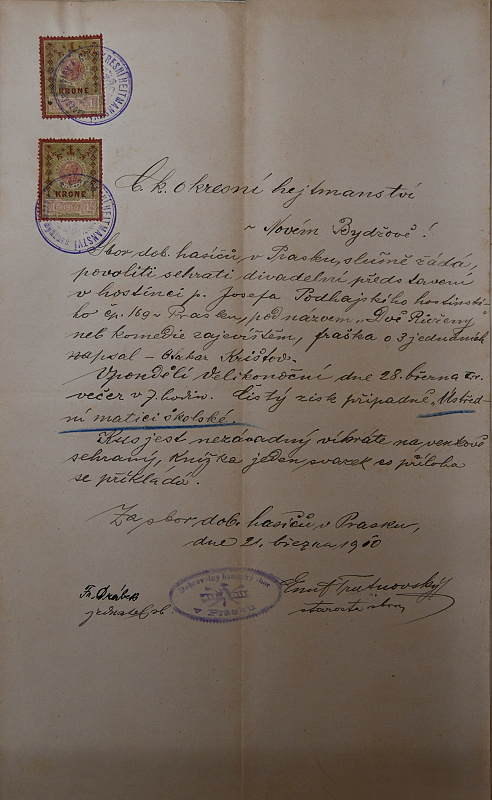 1
KRONE
1
KRONE
C. k. okresní hejtmanství
v Novém Bydžově!
Sbor dob. hasičů v Prasku, slušně žádá,
povoliti sehrati divadelní představení
v hostinci p. Josefa Podhajského hostinské-
ho čp. 169 v Prasku, pod názvem „Dvě Růženy
neb komedie za jevištěm, fraška o 3 jednáních
napsal – Otakar
V pondělí Velikonoční dne 28. března t.r.
večer v 7. hodin. Čistý zisk připadne, Ústřed-
ní matici školské.
Kus jest nezávadný víkráte na venkově
sehraný, knížka jeden svazek co příloha
se přikládá.
Za sbor dob. hasičů, v Prasku,
dne 21. března 1910
Dobrovolný hasičský sbor
v Prasku
Fr. Drábek
jednatel sb.
Trutnovský
starosta sboru